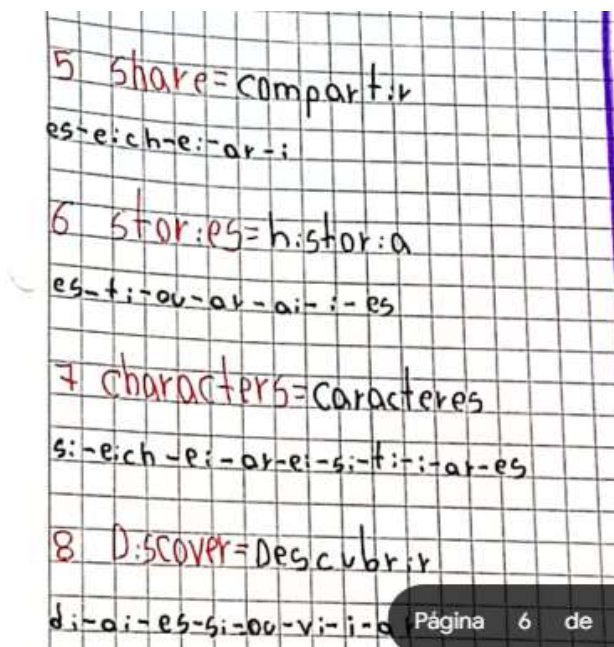 5 Share=compartir
es-eich-ei-ar-i
6 stories=historia
es-ti-ou-ar-ai-i-es
7 characters=caracteres
si-eich-ei-ar-ei-si-ti-i-ar-es
8 Discover=Descubrir
di-ai-es-si-ou-vi-i-a
Página 6 de